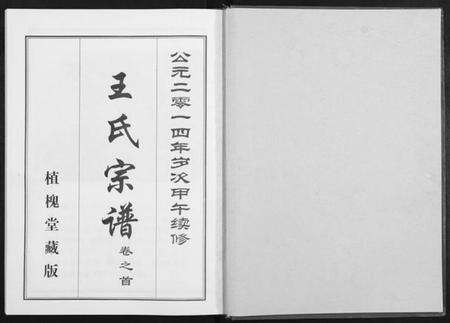 公元二零一四年岁次甲午续修
王氏宗谱
卷之首
植槐堂藏版